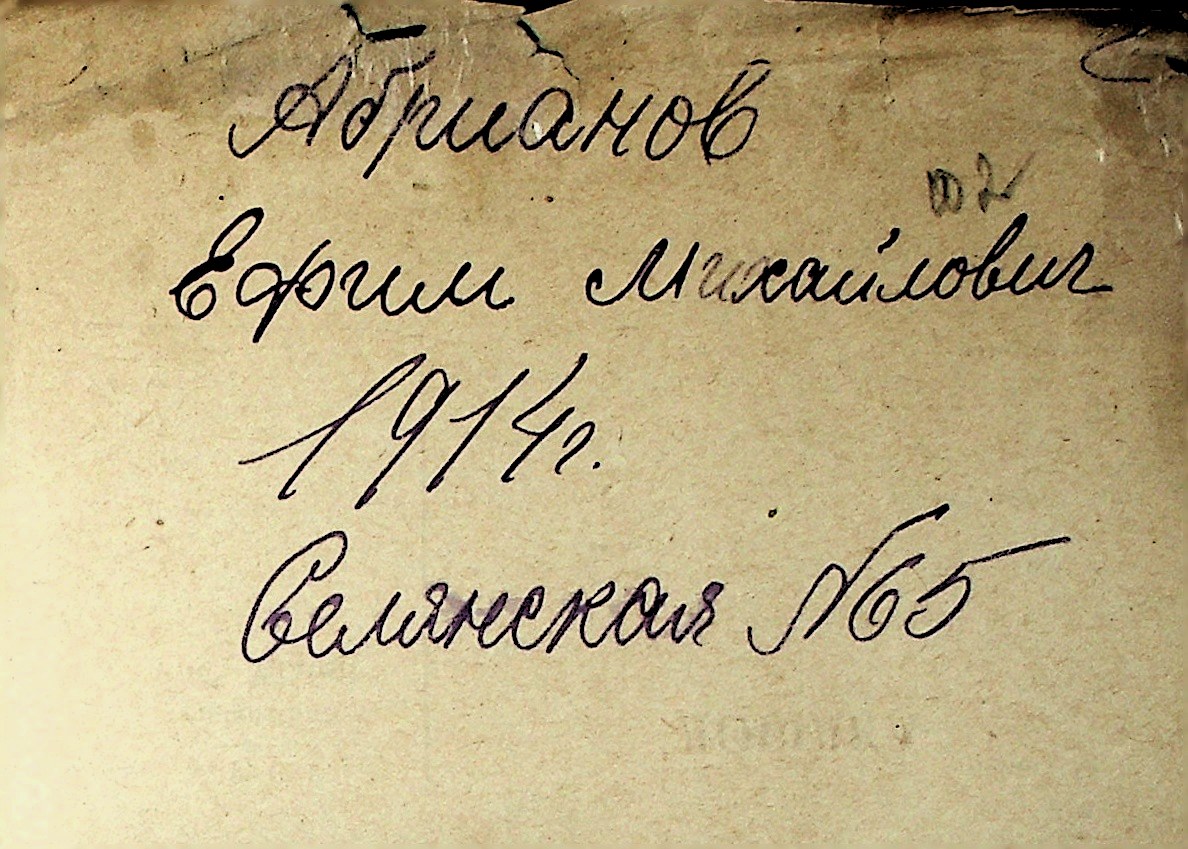 Абрианов
Ефим Михайлович
1914г.
Селянская №65